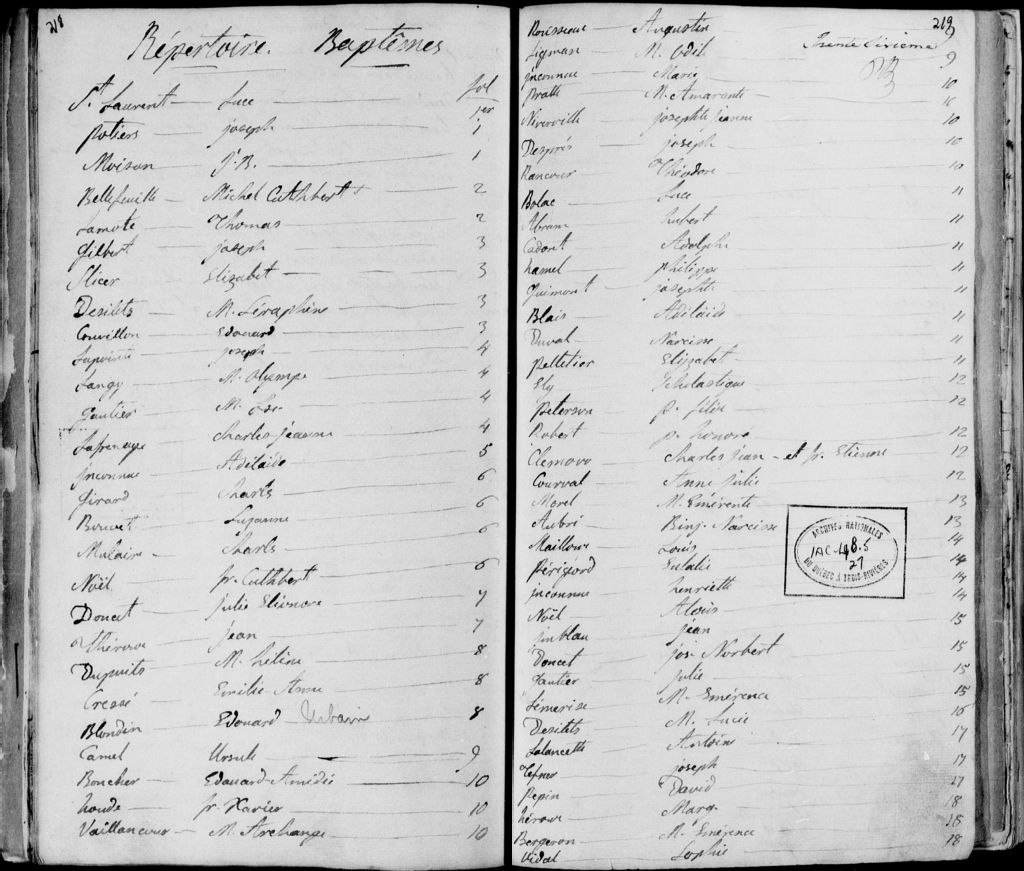 218
Répertoire. Baptêmes
fol
St Laurent — Luce — 1er
Potiers — joseph — 1
Moison — J. B. — 1
Bellefeuille — Michel Cuthbert — 2
Lamote — Thomas — 2
Gilbert — joseph — 3
Slicer — Elizabet — 3
Desilets — M. Séraphine — 3
Couvillon — Edouard — 3
Lapointe — joseph — 4
Langy — M. Olympe — 4
Gautier — M. — 4
Lafrenaye — Charles jeanne — 4
inconnue — Adélaïde — 5
Girard — Charls — 6
Bouvet — Suzanne — 6
Mulair — Charls — 6
Noël — fr. Cuthbert — 6
Doucet — Julie Eléonore — 7
Thérou — jean — 7
Dupuits — M. héline — 8
Cressé — Emilie Anne — 8
Blondin — Edouard Urbain — 8
Camel — Ursule — 9
Boucher — Edouard Amédée — 10
houde — fr. Xavier — 10
Vaillancour — M. Archange — 10
219
Rousseau — Augustin — 9
Sigman — M. Odile — 9
trente sixieme
inconnue — Marie — 10
Pratte — M. Amarante — 10
Niverville — josephte jeanne — 10
Després — joseph — 10
Rancour — Théodore — 10
Bolac — Luce — 11
Abram — hubert — 11
Cadont — Adolphe — 11
hamel — philippe — 11
Guimont — josephte — 11
Blais — Adélaïde — 11
Duval — Narcisse — 11
Pelletier — Elizabet — 11
Ely — Scholastique — 12
Peterson — p. félix — 12
Robert — p. honoré — 12
Clemovo — Charles jean — et fr. Etienne — 12
Courval — Anne julie — 12
Morel — M. Emérente — 13
Aubri — Binj. Narcisse — 13
Mailloux — Louis — 14
Périgord — Eulalie — 14
inconnue — henriette — 14
Noël — Aloïs — 14
jinblau — jean — 15
Doucet — jos. Norbert — 15
Gautier — julie — 15
Lémerise — M. Emérence — 15
Desilets — M. Lucie — 16
Lalancette — Antoine — 17
Hefner — joseph — 17
Pepin — David — 17
héroux — Marg. — 18
Bergeron — M. Emérence — 18
Vidal — Sophie — 18
ARCHIVES NATIONALES
IAC-48.5
27
DU QUEBEC A TROIS-RIVIERES